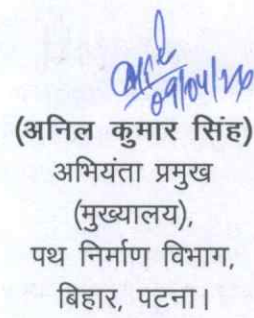 09/04/26
(अनिल कुमार सिंह)
अभियंता प्रमुख
(मुख्यालय),
पथ निर्माण विभाग,
बिहार, पटना।